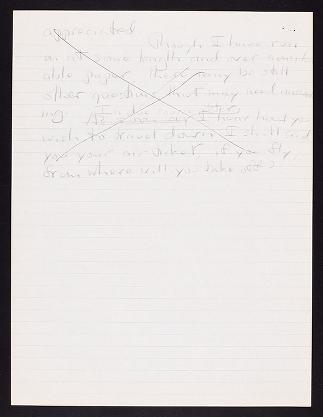 appreciated
Though I have run
on at some length and over consider-
able paper there may be still
other questions that may need answer-
ing. I
As soon as I hear how you
wish to travel down I shall send
you your air ticket. if you fly,
from where will you take off?